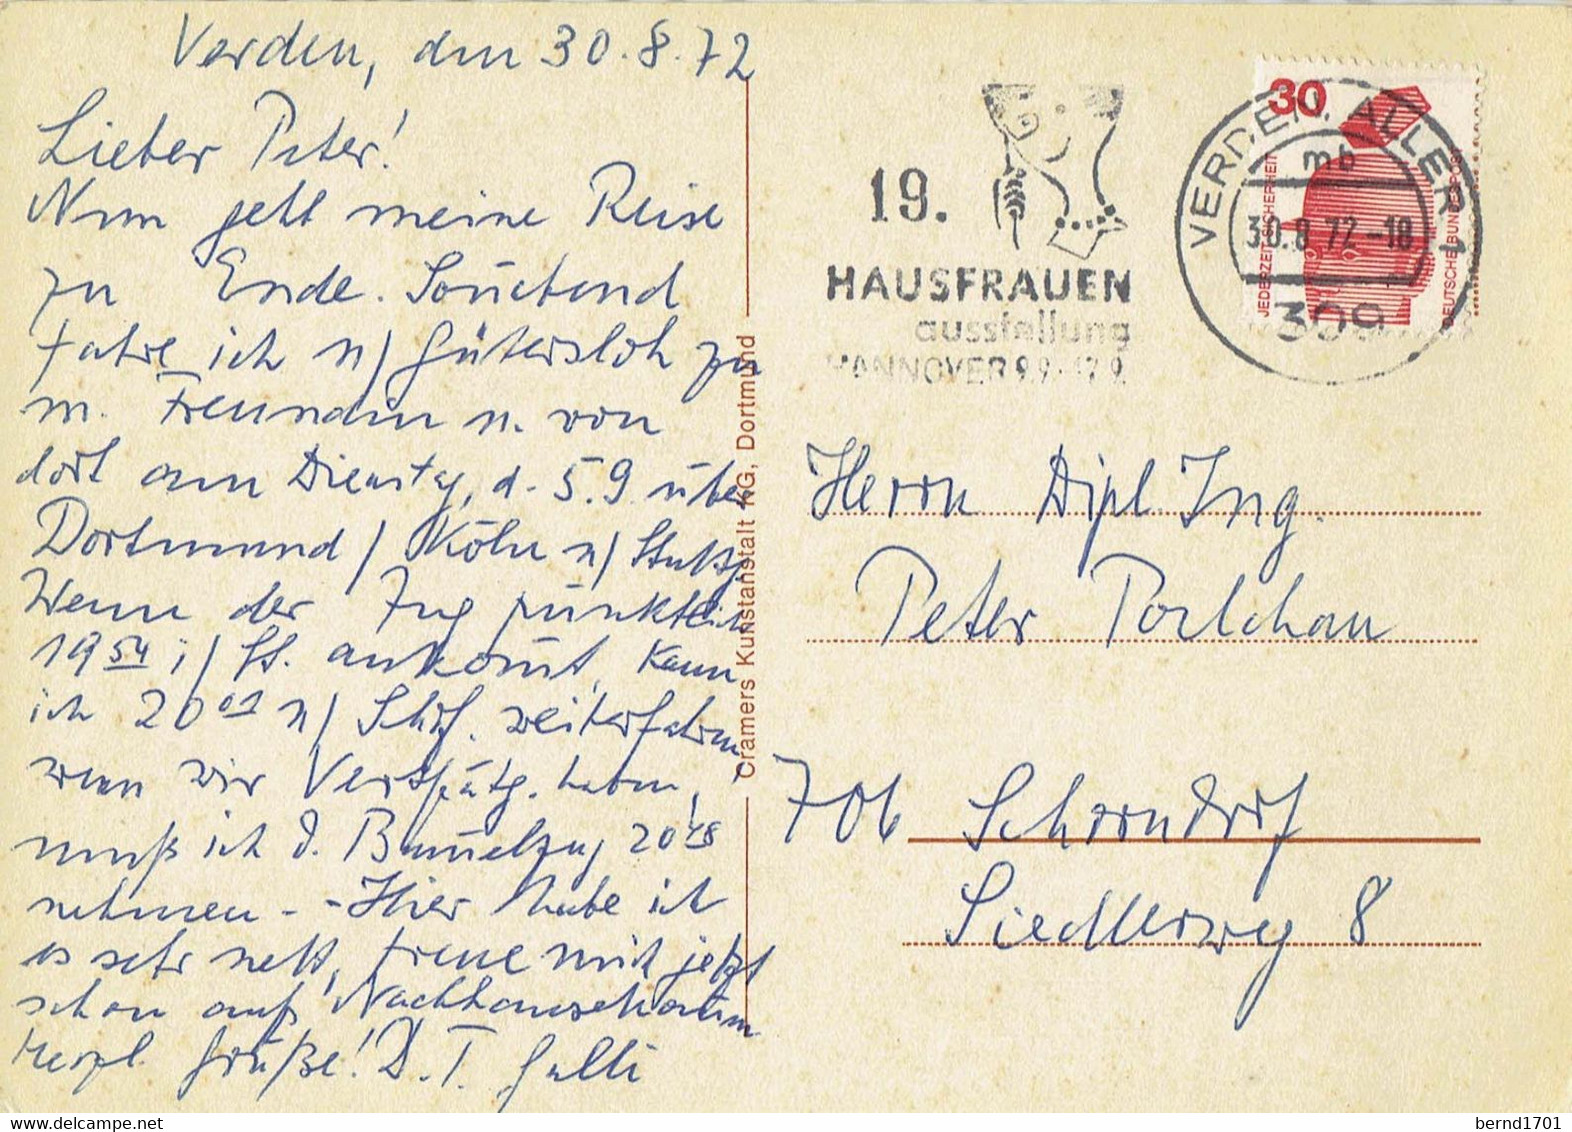 Verden, den 30.8.72
Lieber Peter!
Nun geht meine Reise
zu Ende. Soñabend
fahre ich n/ Gütersloh zu
m. Freundin u. von
dort am Dienstag, d. 5.9 über
Dortmund / Köln n/ Stuttg.
Wenn der Zug pünktlich
19 54 i/ St. ankom̃t, kann
ich 20 01 n/ Schf. weiterfahren,
wenn wir Verspätg. haben,
muß ich d. Bum̃elzug 20 48
nehmen - - Hier habe ich
es sehr nett, freue mich jetzt
schon auf's Nachhausekom̃en
Herzl. Grüße! D. T. Galli
Cramers Kunstanstalt KG, Dortmund
19.
HAUSFRAUEN
ausstellung
HANNOVER 9.9.-17.9.
30
JEDERZEIT SICHERHEIT
DEUTSCHE BUNDESPOST
VERDEN, ALLER 1
mb
30.8.72-18
309
Herrn Dipl. Ing.
Peter Porschau
706 Schorndorf
Siedlerweg 8
bernd1701